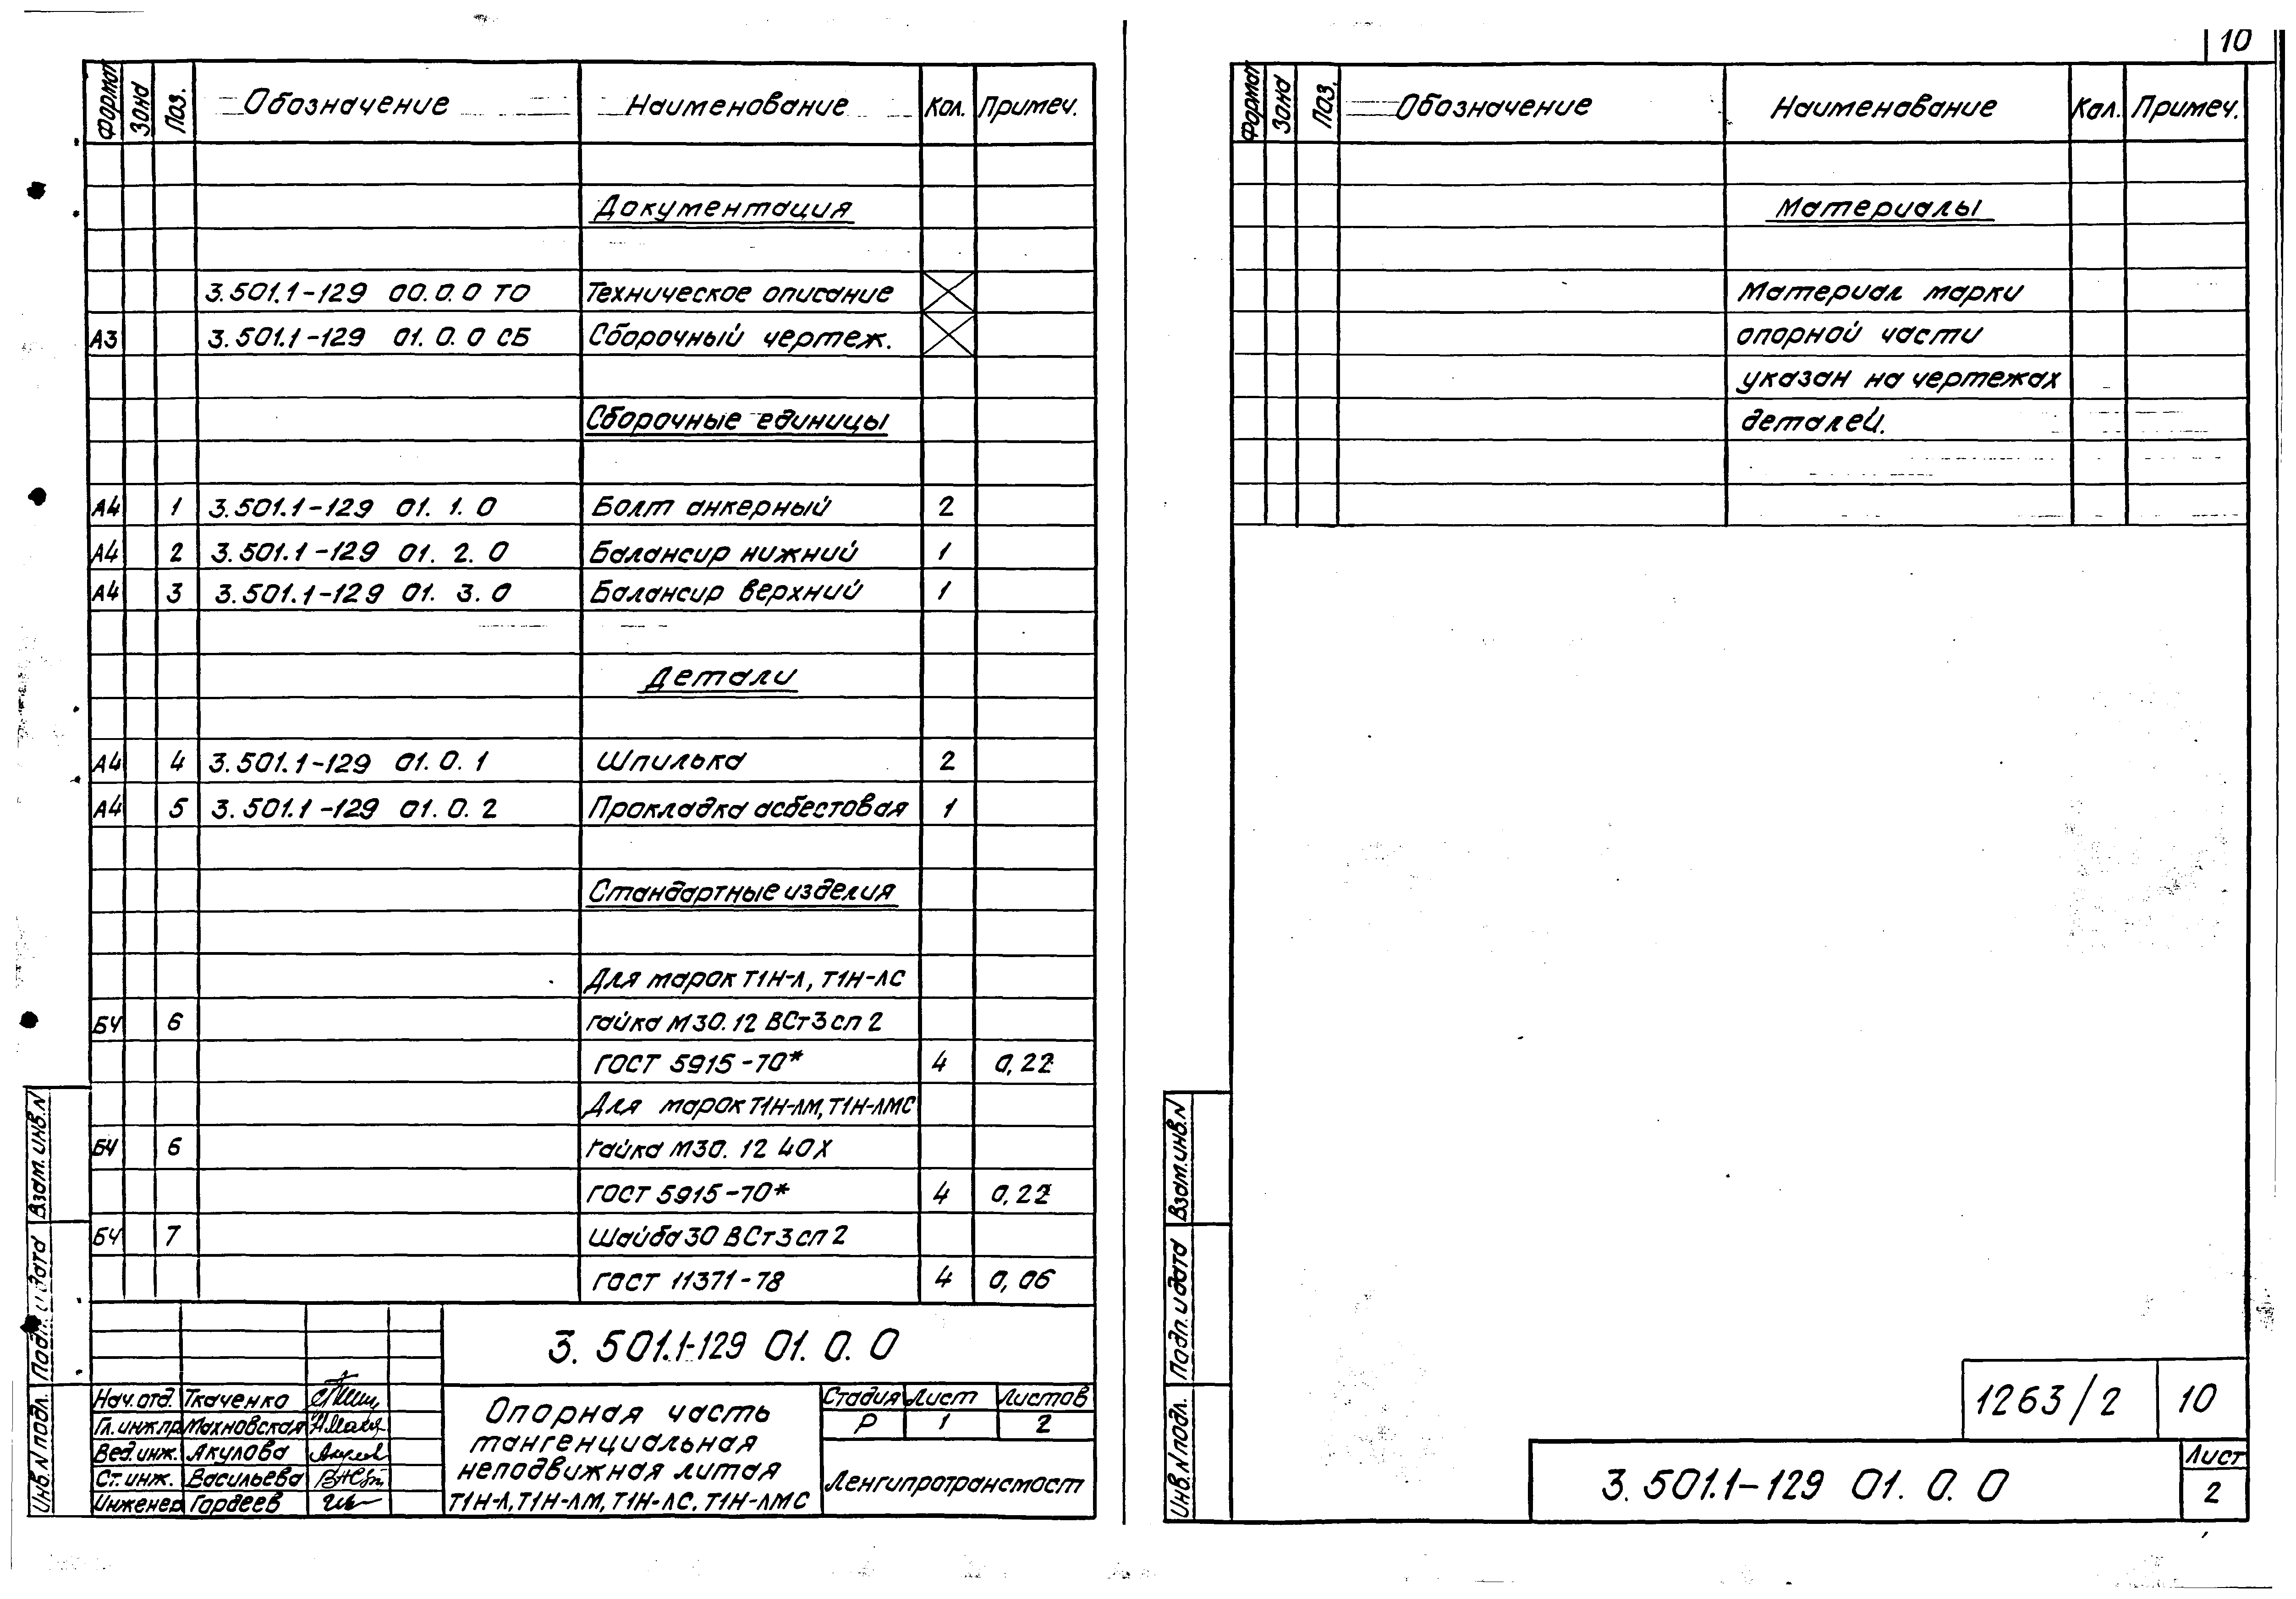 Формат Зона Поз. Обозначение Наименование Кол. Примеч.
Документация
3.501.1-129 00.0.0 ТО Техническое описание
А3 3.501.1-129 01.0.0 СБ Сборочный чертеж.
Сборочные единицы
А4 1 3.501.1-129 01.1.0 Болт анкерный 2
А4 2 3.501.1-129 01.2.0 Балансир нижний 1
А4 3 3.501.1-129 01.3.0 Балансир верхний 1
Детали
А4 4 3.501.1-129 01.0.1 Шпилька 2
А4 5 3.501.1-129 01.0.2 Прокладка асбестовая 1
Стандартные изделия
Для марок Т1Н-Л, Т1Н-ЛС
БЧ 6 гайка М30.12 ВСт3сп2
ГОСТ 5915-70* 4 0,22
Для марок Т1Н-ЛМ, Т1Н-ЛМС
БЧ 6 гайка М30.12 40Х
ГОСТ 5915-70* 4 0,22
БЧ 7 Шайба 30 ВСт3сп2
ГОСТ 11371-78 4 0,06
Взам.инв.N
Подп. и дата
Инв.N подл.
3.501.1-129 01.0.0
Нач.отд. Ткаченко
Гл.инж.пр Махновская
Вед.инж. Акулова
Ст.инж. Васильева
Инженер Гордеев
Опорная часть
тангенциальная
неподвижная литая
Т1Н-Л, Т1Н-ЛМ, Т1Н-ЛС, Т1Н-ЛМС
Стадия Лист Листов
Р 1 2
Ленгипротрансмост
10
Формат Зона Поз. Обозначение Наименование Кол. Примеч.
Материалы
Материал марки
опорной части
указан на чертежах
деталей.
Взам.инв.N
Подп. и дата
Инв.N подл.
1263/2 10
3.501.1-129 01.0.0
Лист
2